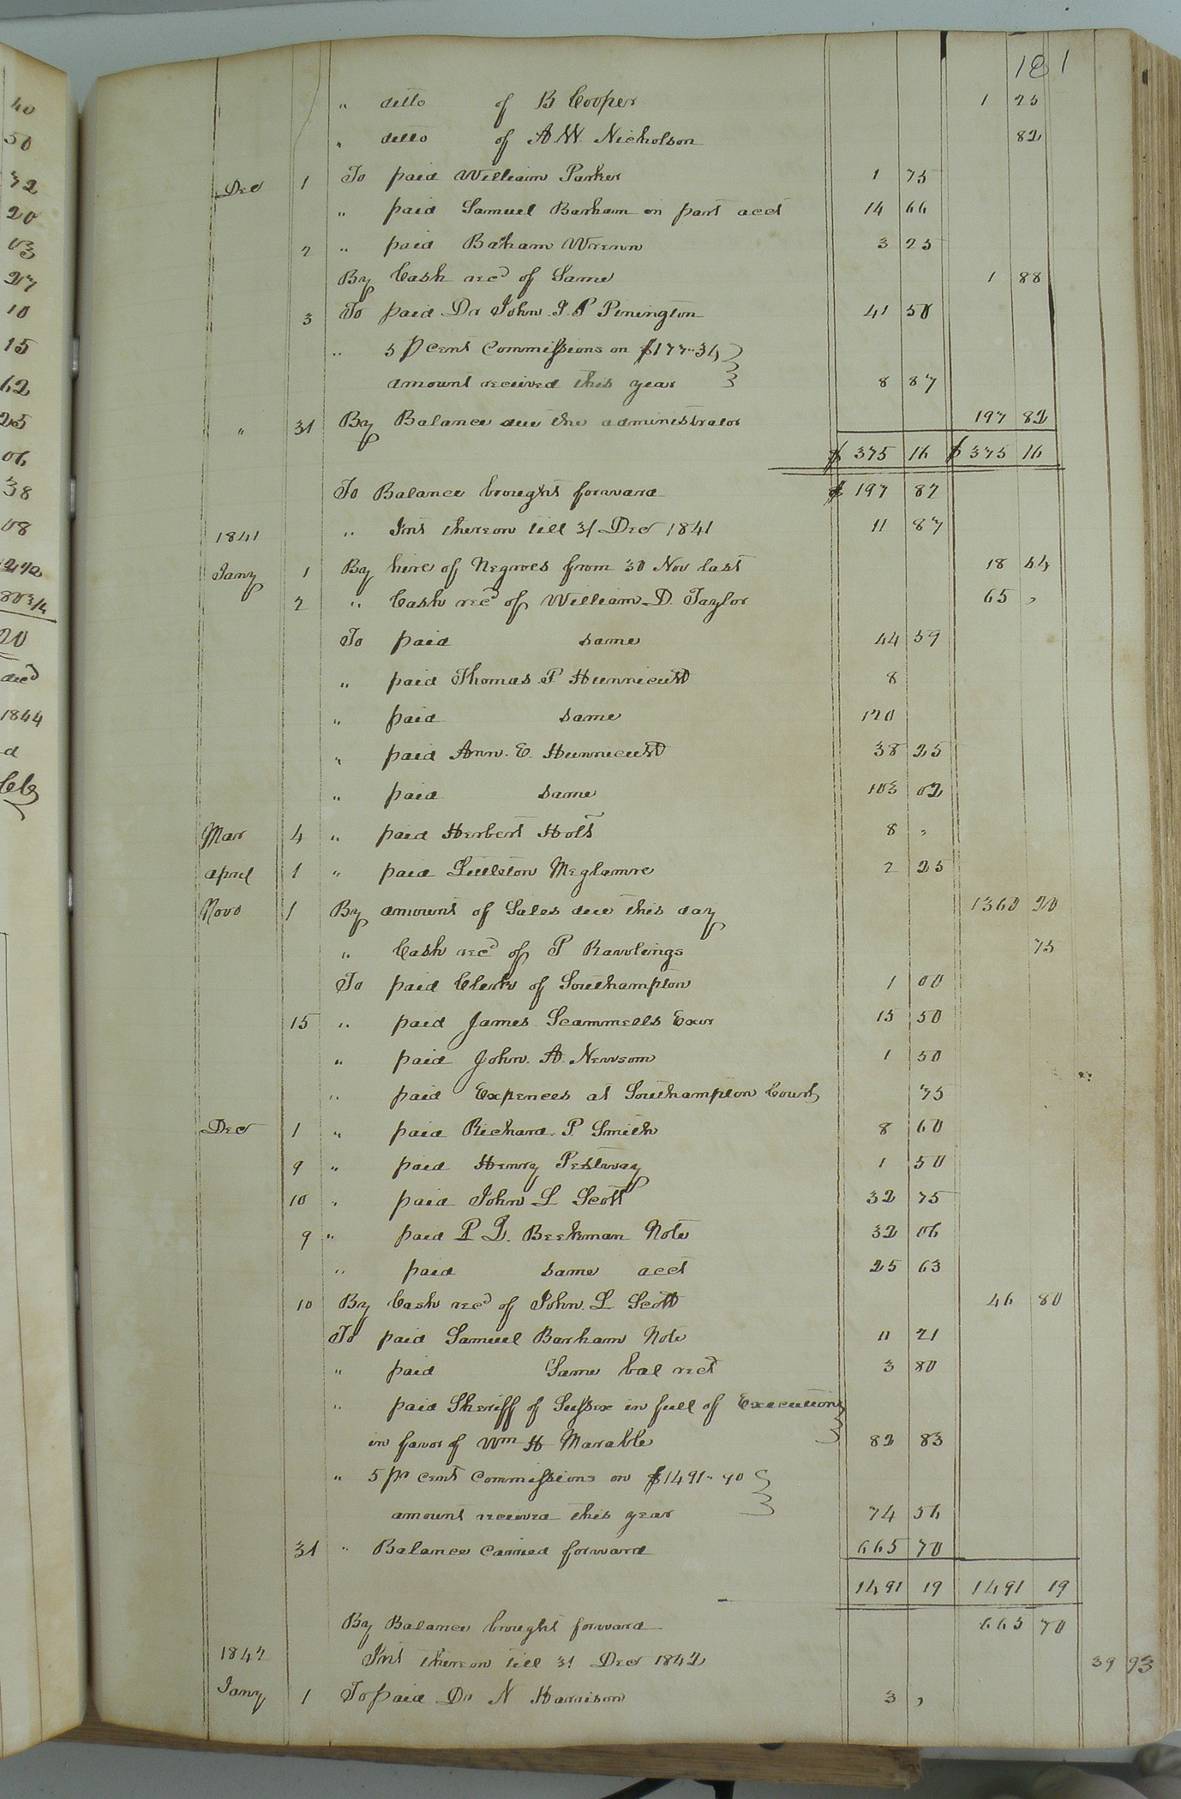 181
40
50
72
20
03
27
10
15
62
25
06
38
08
20
1844
" ditto of B Cooper 1 25
" ditto of A W. Nicholson 82
Dec 1 To paid William Parker 1 75
" paid Samuel Barham in part acct 14 66
2 " paid Baham Wrenn 3 25
By Cash recd of Same 1 88
3 To paid Dr John I. P Penington 41 50
" 5 P Cent Commissions on $177..34
amount received this year 8 87
" 31 By Balance due the administrator 197 82
$ 375 16 $ 375 16
To Balance brought forward $ 197 82
1841 " Int thereon till 31 Dec 1841 11 87
Jany 1 By hire of Negroes from 30 Nov last 18 44
2 " Cash recd of William D. Taylor 65 "
To paid same 44 59
" paid Thomas P Hunnicutt 8
" paid same 120
" paid Ann. E. Hunnicutt 38 25
" paid same 103 02
Mar 4 " paid Herbert Holt 8 "
April 1 " paid Littleton Meglamre 2 25
Novo 1 By amount of Sales due this day 1360 20
" Cash recd of P Rawlings 75
To paid Clerk of Southampton 1 00
15 " paid James Scammells Exor 15 50
" paid John. A. Newsom 1 50
" paid Expences at Southampton Court 75
Dec 1 " paid Richard. P Smith 8 60
9 " paid Henry Pestway 1 50
10 " paid John L Scott 32 75
9 " paid P I. Beekman Note 32 06
" paid same acct 25 63
10 By Cash recd of John. L Scott 46 80
To paid Samuel Barham Note 11 21
" paid Same bal rect 3 80
" paid Sheriff of Sussex in full of Executions
in favor of Wm H Marable 82 83
" 5 pr cent Commissions on $1491..70
amount received this year 74 56
31 " Balance Carried forward 665 70
1491 19 1491 19
By Balance brought forward 665 70
1842 Int thereon till 31 Dec 1842 39 93
Jany 1 To paid Dr N Harrison 3 "